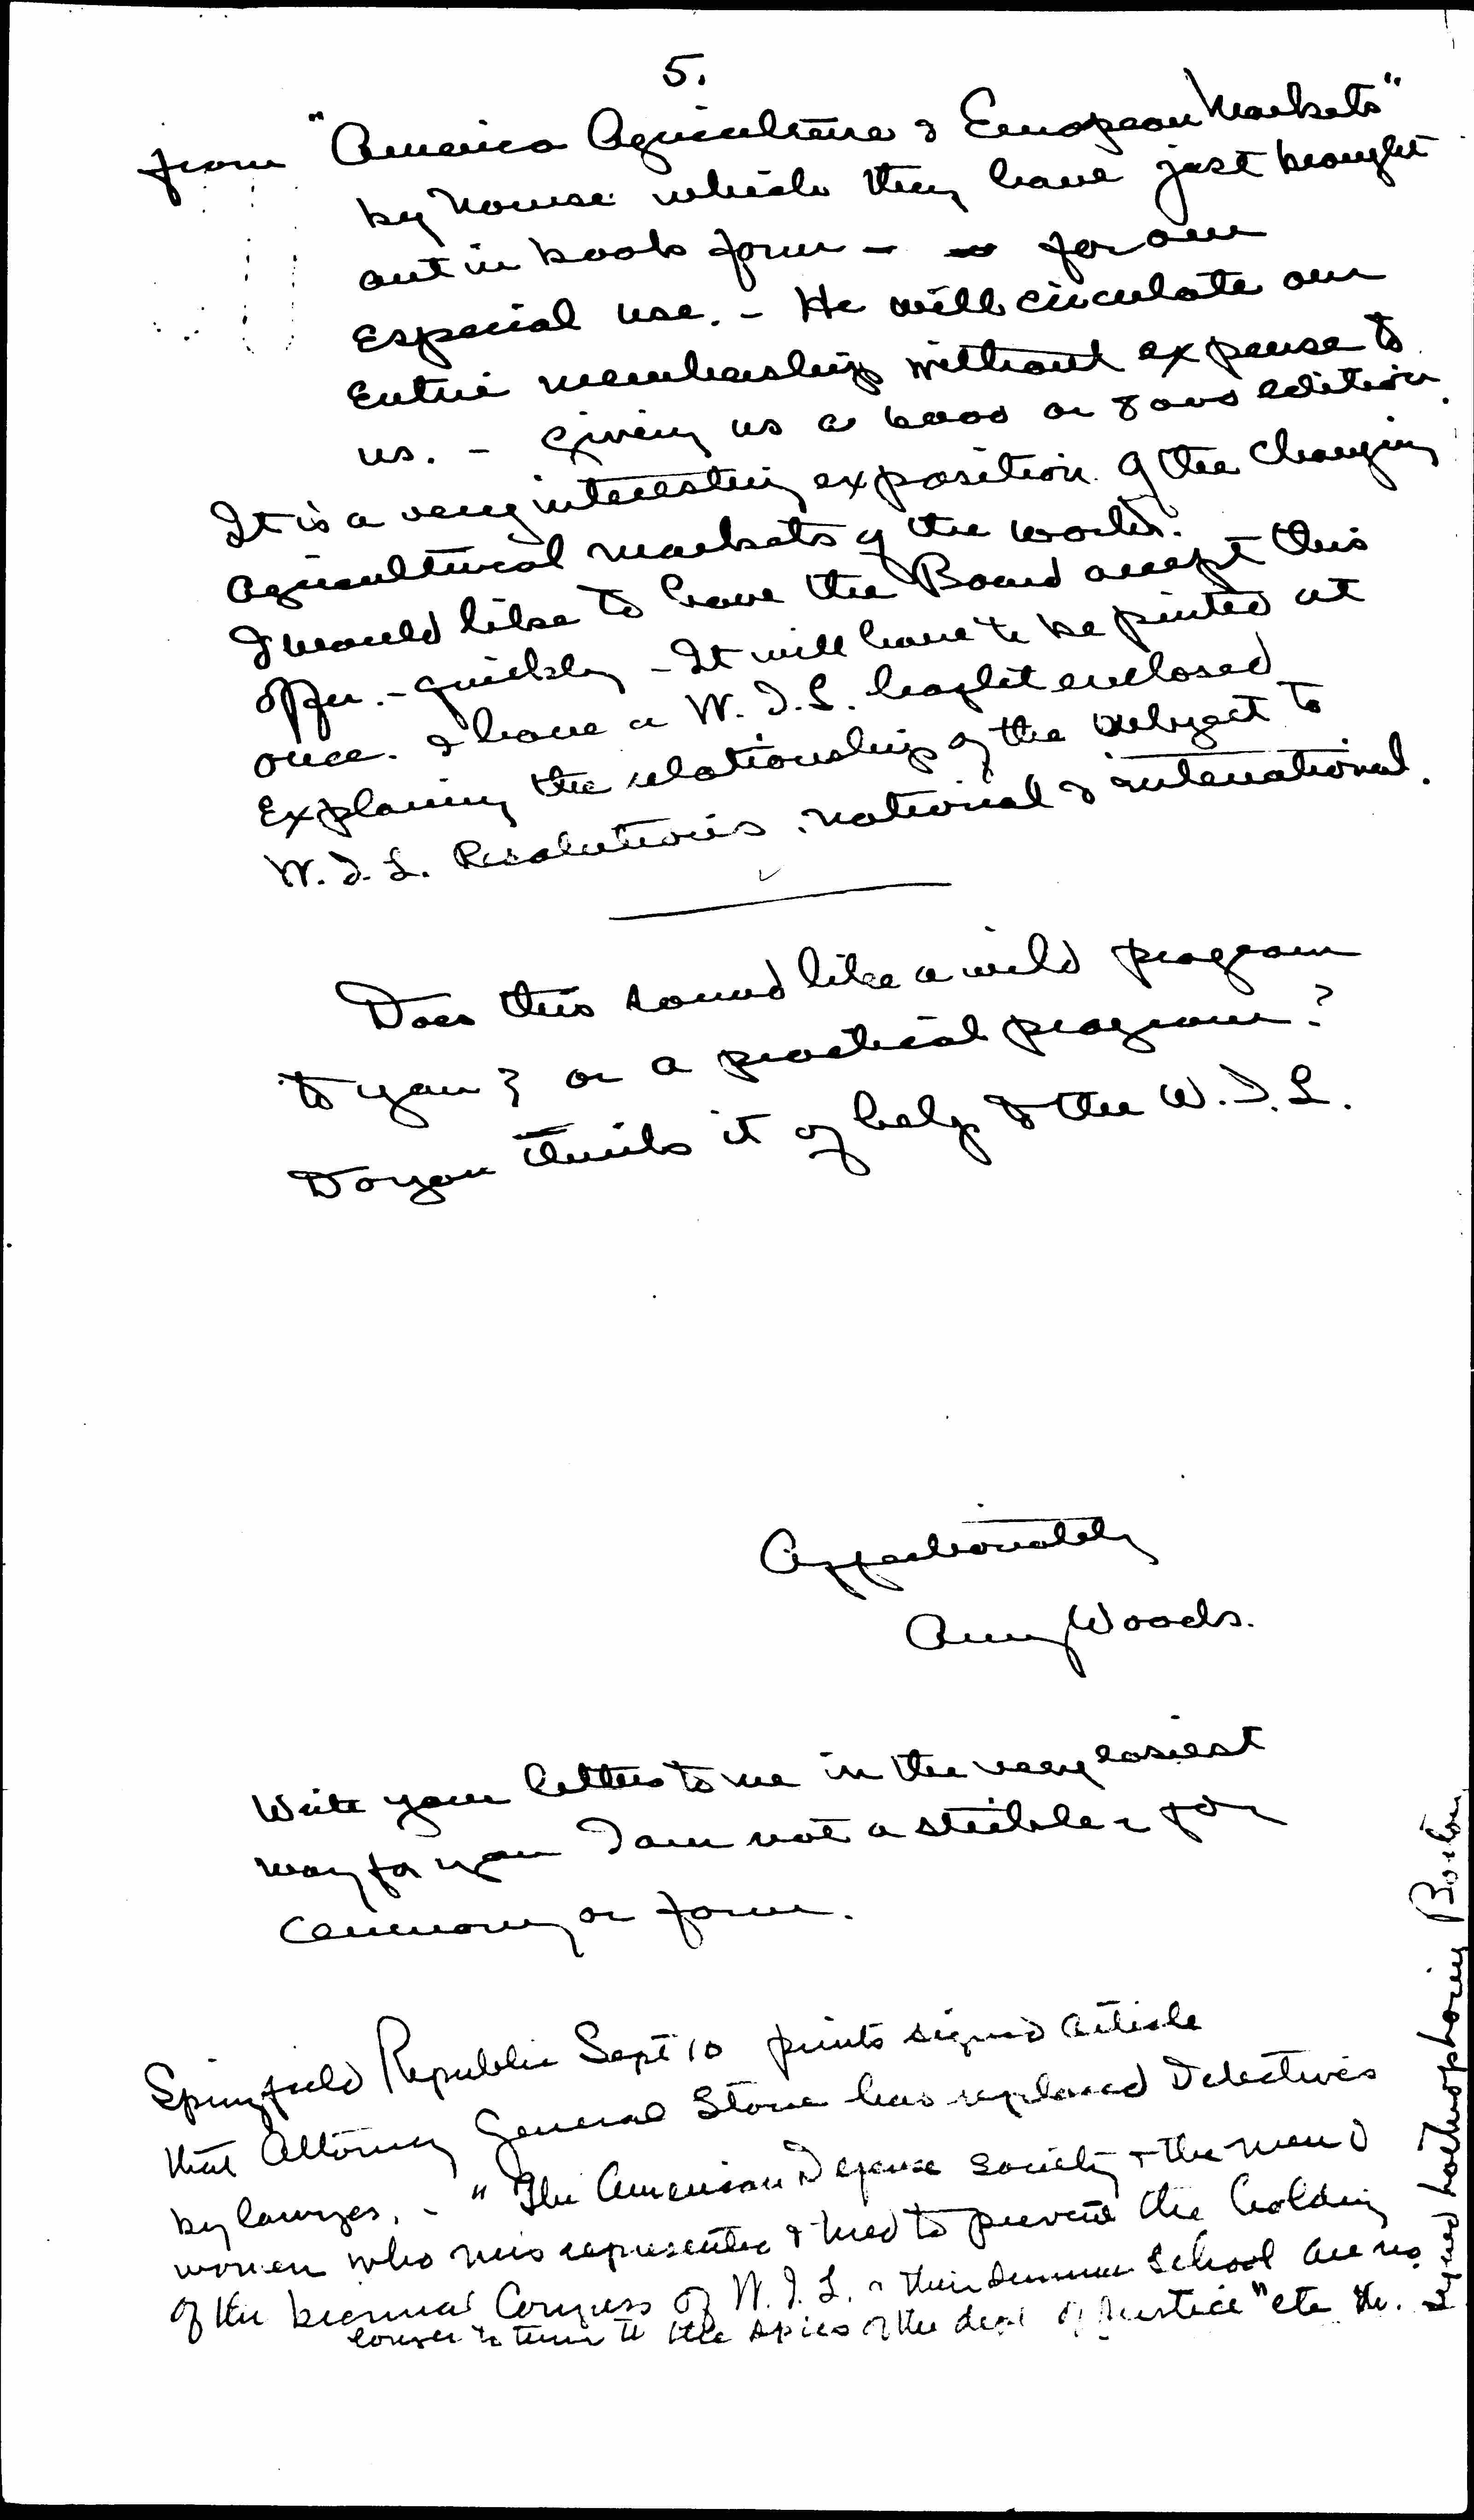 5.
from "America Agriculture & European Markets"
by Nourse which they have just brought
out in book form – for our
especial use. – He will circulate our
entire membership without expense to
us. – Giving us a 6000 or 7000 edition.
It is a very interesting exposition of the changing
agricultural markets of the world.
I would like to have the Board accept this
offer. – quickly – It will have to be printed at
once. & have a W.I.L. leaflet enclosed
explaining the relationship of the subject to
W.I.L. Resolutions, national & international.
Does this sound like a wild program
to you? or a practical program?
Do you think it of help to the W.I.L.
Affectionately
Amy Woods.
Write your letters to me in the very easiest
way for you I am not a stickler for
ceremony or form.
Springfield Republic Sept 10 prints signed article
that Attorney General Stone has replaced Detectives
by lawyers. – "The American Defense Society & the men &
women who misrepresented & tried to prevent the holding
of the biennial Congress of W.I.L. & their summer school are no
longer to turn to the spies of the dept of Justice" etc etc.
signed Boston